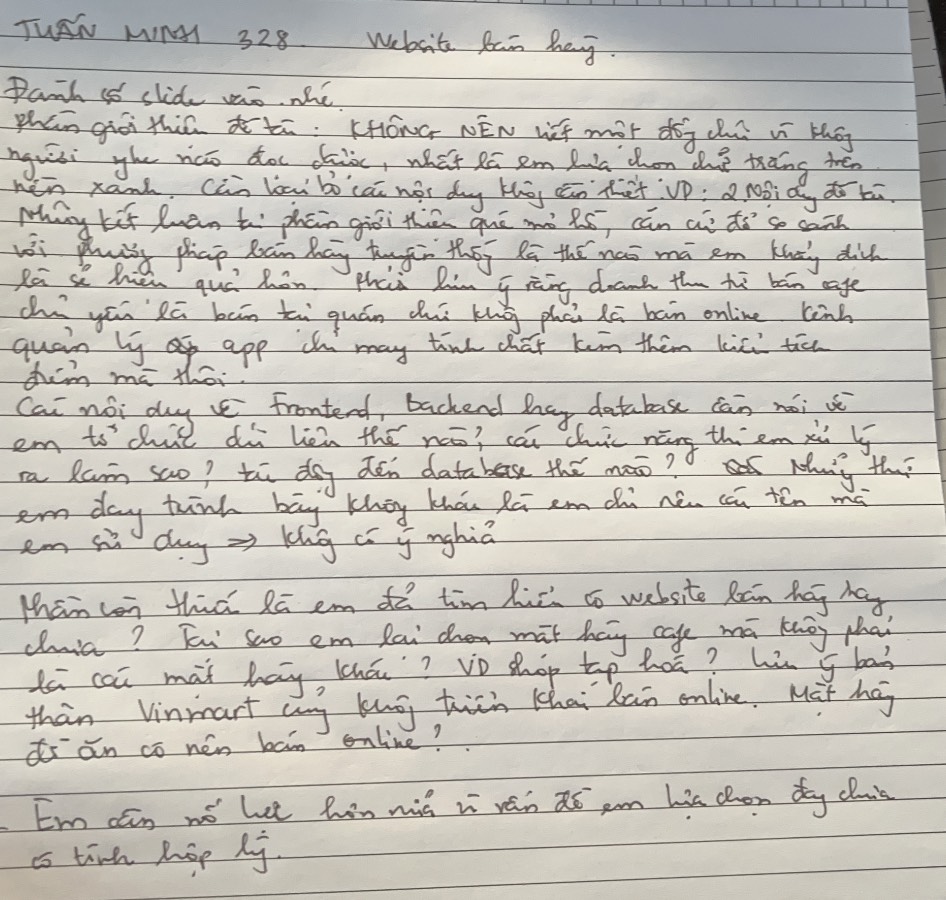 TUẤN MINH 328. Website bán hàng.
Đánh số slide vào nhé.
Phần giới thiệu đề tài: KHÔNG NÊN viết một đống chữ vì không
người nghe nào đọc được, nhất là em lựa chọn chữ trắng trên
nền xanh. Cần loại bỏ các nội dung không cần thiết. VD: 2. Nội dung đề tài.
Những kết luận từ phần giới thiệu quá mơ hồ, căn cứ để so sánh
với phương pháp bán hàng truyền thống là thế nào mà em khẳng định
là sẽ hiệu quả hơn. Phải lưu ý rằng doanh thu từ bán cafe
chủ yếu là bán tại quán chứ không phải là bán online. Kênh
quản lý app chỉ mang tính chất kèm thêm kiểu tích
điểm mà thôi.
Các nội dung về Frontend, Backend hay database cần nói về
em tổ chức dữ liệu thế nào; các chức năng thì em xử lý
ra làm sao? tác động đến database thế nào? Những thứ
em đang trình bày không khác là em chỉ nêu cái tên mà
em sử dụng ⇒ không có ý nghĩa
Phần còn thiếu là em đã tìm hiểu các website bán hàng hay
chưa? Tại sao em lại chọn mặt hàng cafe mà không phải
là các mặt hàng khác? VD shop tạp hoá? lưu ý bản
thân Vinmart cũng không triển khai bán online. Mặt hàng
đồ ăn có nên bán online?
- Em cần nỗ lực hơn nữa vì vấn đề em lựa chọn đang chưa
có tính hợp lý.